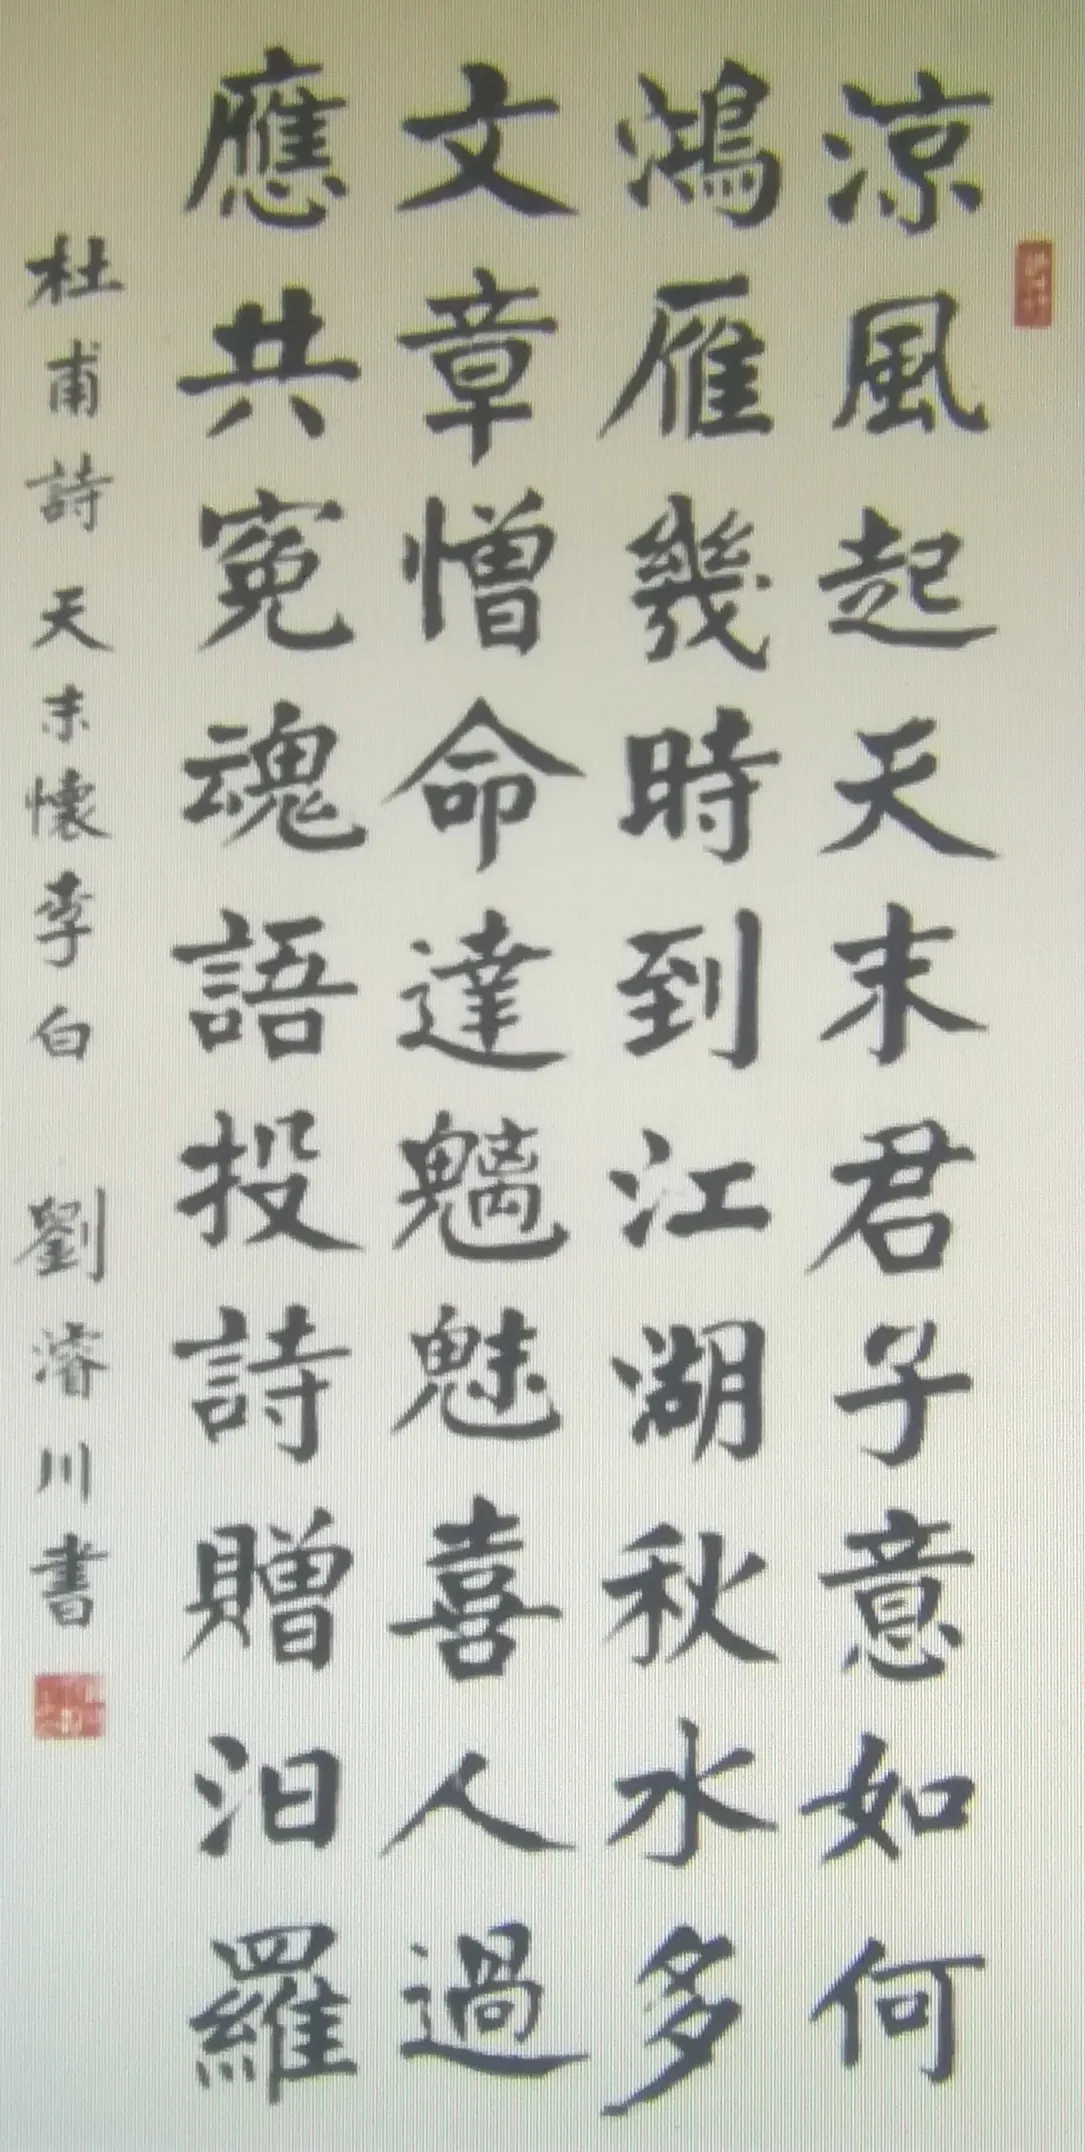 凉風起天末君子意如何
鴻雁幾時到江湖秋水多
文章憎命達魑魅喜人過
應共寃魂語投詩贈汨羅
杜甫詩天末懷李白 劉濬川書